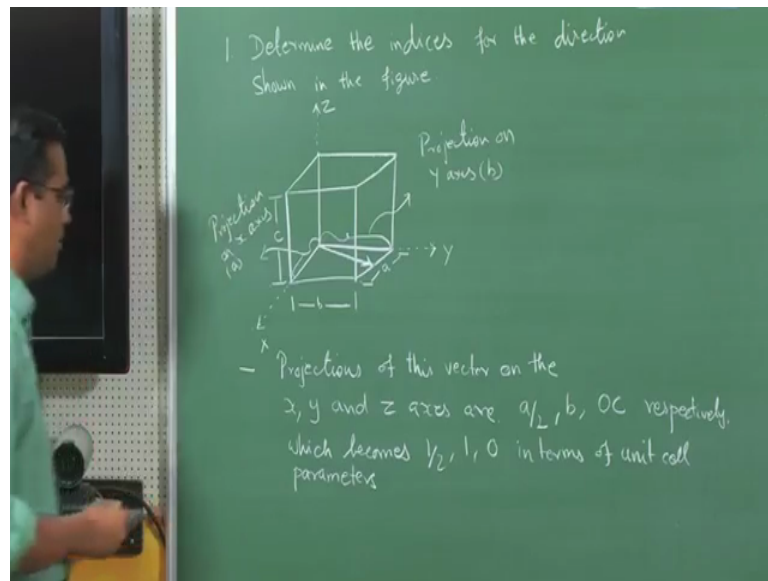 1. Determine the indices for the direction
shown in the figure.
Z
Projection on
y axis (b)
Projection
on x axis
(a)
c
Y
a
b
X
- Projections of this vector on the
x, y and z axes are a/2, b, OC respectively.
which becomes 1/2, 1, 0 in terms of unit cell
parameters